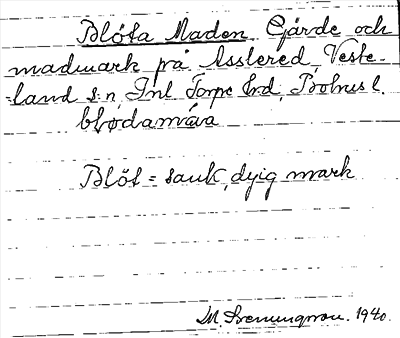 Blöta Maden. Gärde och
madmark på Asslered, Väste-
land s:n, Inl. Torpe hrd, Bohus l.
blødamáva
Blöt = sank, dyig mark
M. 1940.